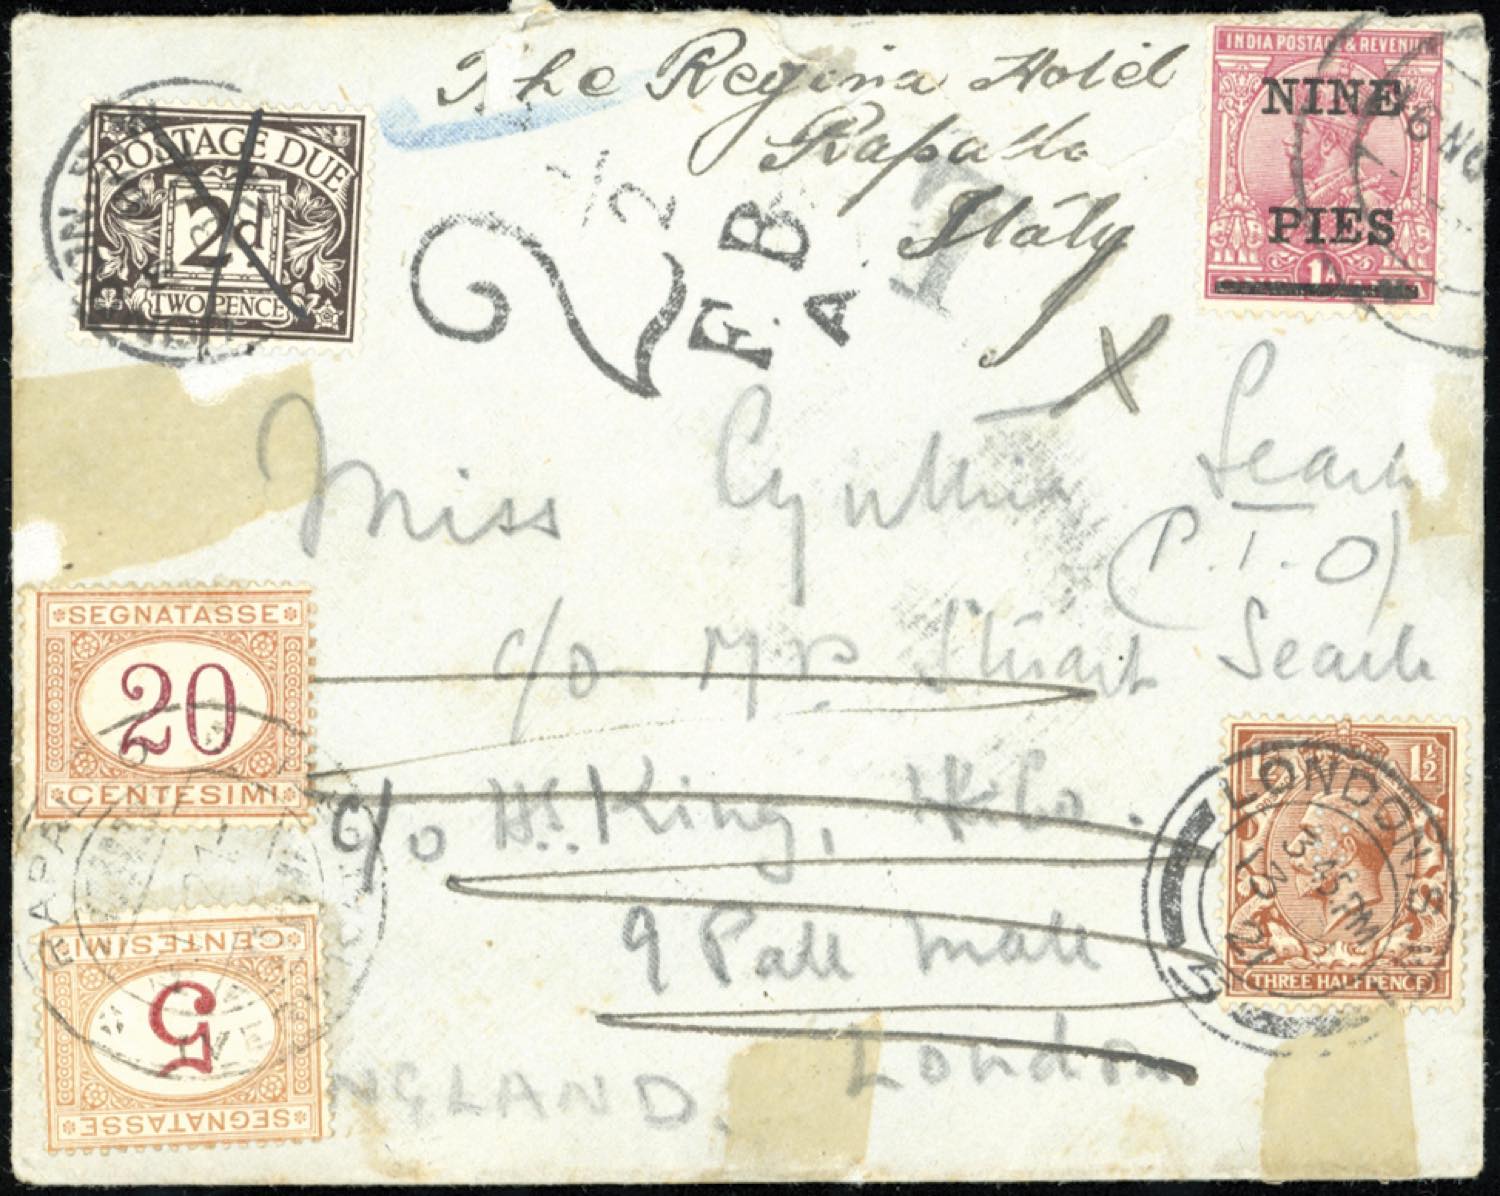 The Regina Hotel
Rapallo
Italy
INDIA POSTAGE & REVENUE
NINE
PIES
1A
POSTAGE DUE
2d
TWO PENCE
2½
F.B.
A
T
Miss Cynthia Searle
(P.T.O)
c/o Mr Stuart Searle
c/o H.S. King, & Co.
9 Pall Mall
London
ENGLAND.
*SEGNATASSE*
20
*CENTESIMI*
*SEGNATASSE*
5
*CENTESIMI*
1½
THREE HALFPENCE
LONDON. S.W.
3.45 PM
21
5